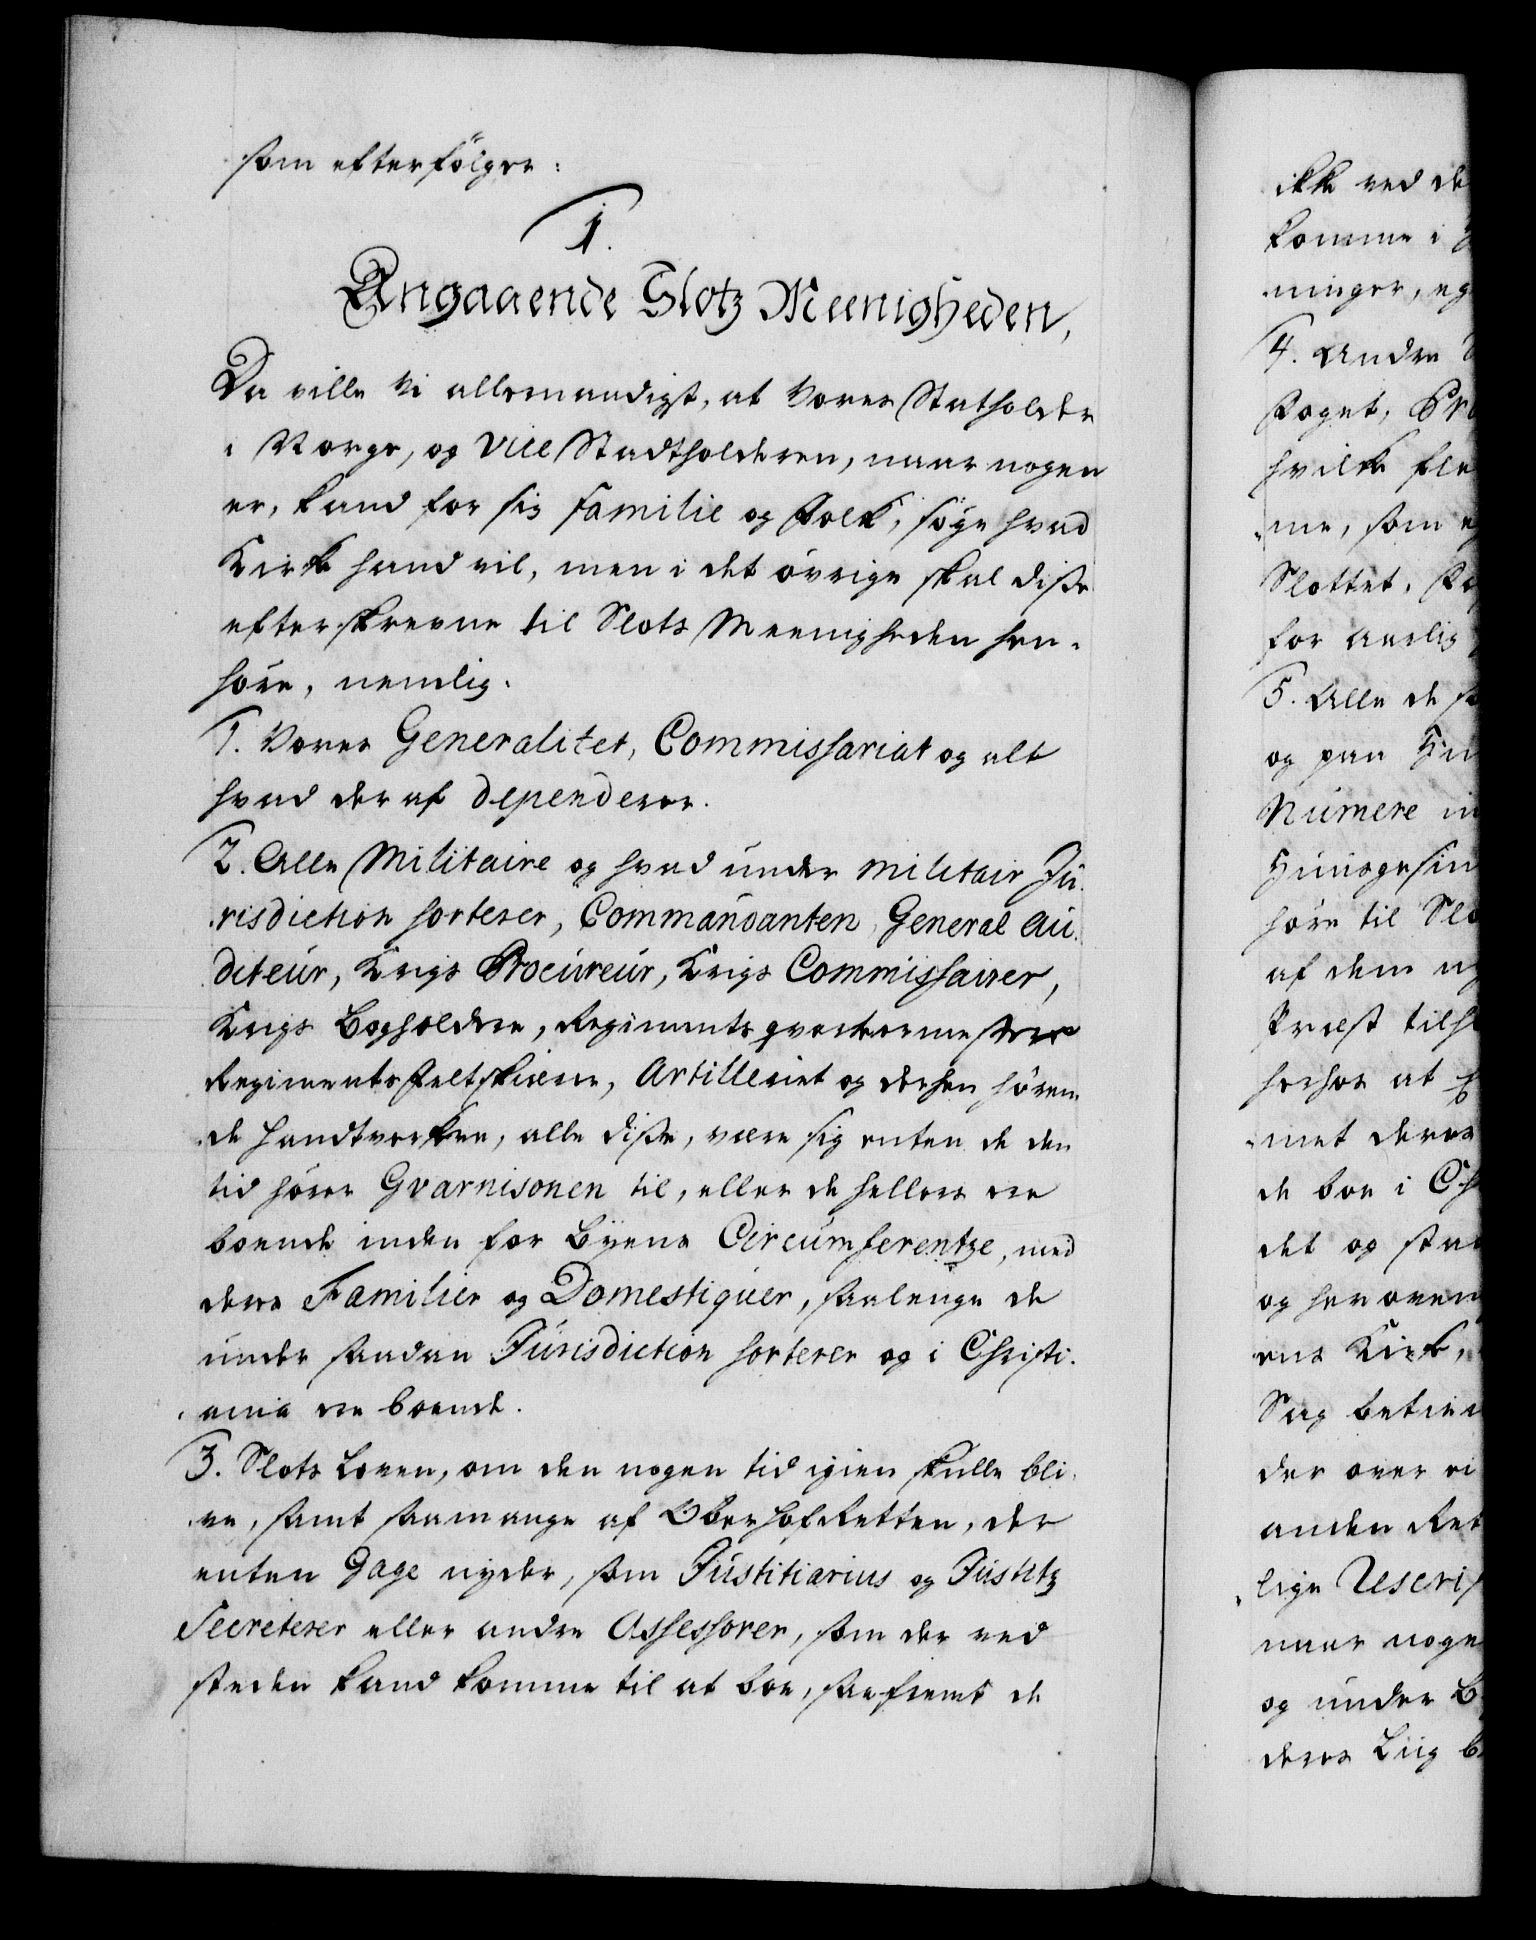 som efterfölger:
1.
Angaaende Slotz Meenigheden,
Da ville Vi allernaadigst, at Vores Statholder
i Norge, og Vice Stadtholderen, naar nogen
er, kand for sig Familie og Folk, söge hvad
Kirke hand vil, men i det övrige skal disse
efterskrevne til Slots Meenigheden hen-
höre, nemlig.
1. Vores Generalitet, Commissariat og alt
hvad der af dependerer.
2. Alle Militaire og hvad under militair Ju-
risdiction sorterer, Commandanten, General Au-
diteur, Krigs Procureur, Krigs Commissairer,
Krigs Bogholdere, Regiments qvarteermestere
Regiments Feltskierere, Artilleriet og derhen hören-
de Handtverkere, alle disse, være sig enten de den
tid hörer Gvarnisonen til, eller de hellers ere
boende inden for Byens Circumferentze, med
deres Familier og Domestiquer, saalenge de
under saadan Jurisdiction sorterer og i Christi-
ania ere boende.
3. Slots Loven, om den nogen tid igien skulle bli-
ve, samt saamange af OberHofRetten, der
enten Gage nyder, som Justitiarius og Justitz
Secreterer eller andre Assessorer, som der ved
steden kand komme til at boe, saafremt de
ikke ved de
komme i
ninger, eg
4. Andre
Foget, Pro
hvilke fle
me, som
Slottet,
for aarlig
5. Alle de
og paa
Numere in
Huusgesin
höre til Slo
af dem
Præst tilh
herhos at
met deres
de boe i Ch
det og
og her oven
ens Kirke,
Sag betien
der over vi
anden Ret
lige Rescrip
naar noge
og under B
deres Liig b